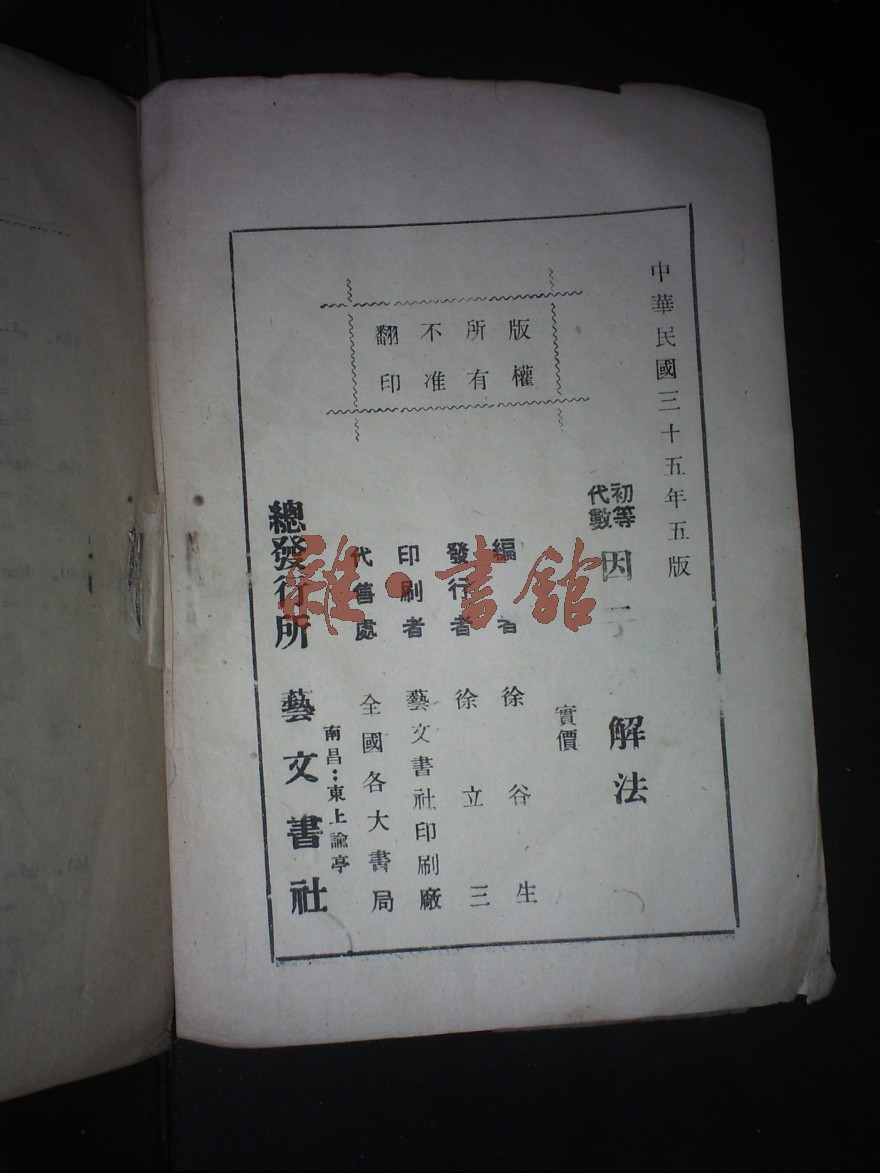 中華民國三十五年五版
版權
所有
不准
翻印
初等
代數
因子 解法
實價
編者 徐谷生
發行者 徐立三
印刷者 藝文書社印刷廠
代售處 全國各大書局
南昌：東上諭亭
總發行所 藝文書社
雜·書館